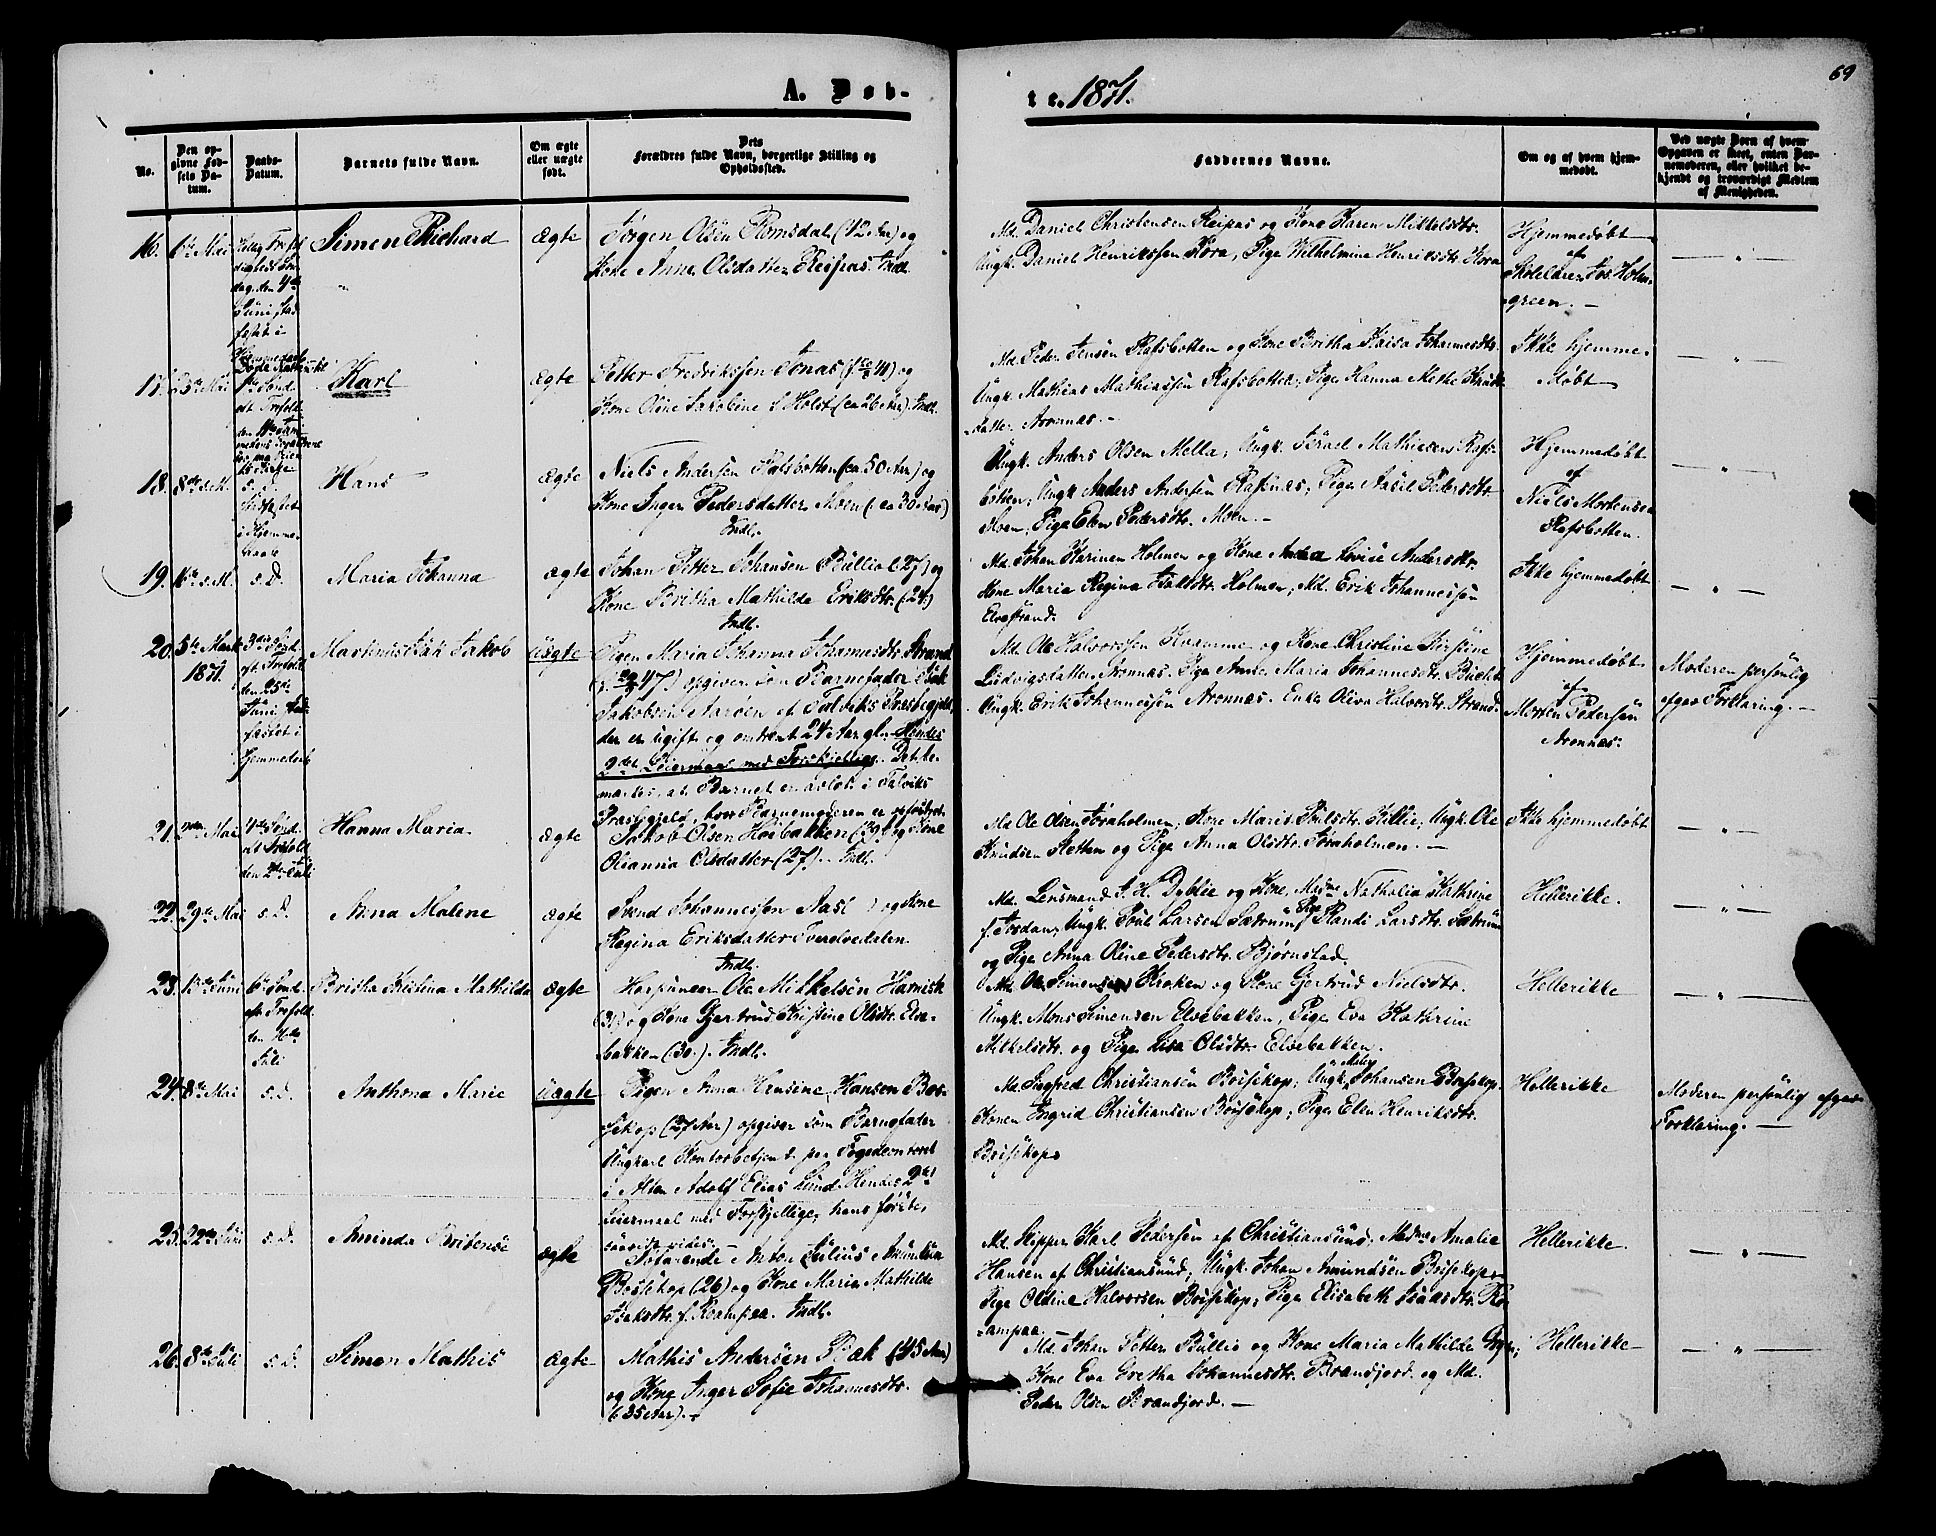 A. Døb-
te. 1871.
69
No.
Den op-
givne Fød-
sels Da-
tum.
Daabs-
Datum.
Barnets fulde Navn.
Om ægte
eller uægte
født.
Dets
Forældres fulde Navn, borgerlige Stilling og
Opholdssted.
Faddernes Navne.
Om og af hvem hjem-
medøbt.
Ved uægte Børn af hvem
Opgaven er skeet, enten Bar-
nemoderen, eller hvilket be-
kjendt og troværdigt Medlem
af Menigheden.
16. 6te Mai
den 4de
Juni, stad
fæstet i
Simon Richard
ægte
Jørgen Olsen Romsdal (42 Aar) og
Kone Anne Olsdatter Reipas. Indl.
Md. Daniel Christensen Reipas og Kone Karen Mikkelsdtr.
Ungk. Daniel Henrikssen Kora, Pige Wilhelmine Henriksdtr. Kora
Hjemmedøbt
af
Skolelærer Jos Holm-
green. —
17. 25de Mai
Karl
ægte
Petter Fredrikssen Jonas og
Kone Oline Jakobine f. Holst (ca 26 Aar). Indl.
Md. Peder Jensen Rafsbotten og Kone Britha Kaisa Johannesdtr.
Ungk. Mathias Mathiassen Rafsbotten, Pige Hanna Methe Knuds-
datter Aronnæs. —
Ikke hjemme-
døbt
18. 8de s. M.
s. D.
Stadfæstet
i Hjemme-
daab
Hans
ægte
Niels Andersen Rafsbotten (ca. 50 Aar) og
Kone Inger Pedersdatter Moen (ca 30 Aar)
Indl.
Ungk. Anders Olsen Mella, Ungk. Israel Mathiesen Rafs-
botten, Ungk. Anders Andersen Rafsnæs, Pige Aasil Pedersdtr
Moen, Pige Elen Pedersdtr. Moen. —
Hjemmedøbt
af
Niels Mortensen
Rafsbotten.
19. 16de s. M.
s. D.
Maria Johanna
ægte
Johan Petter Johansen Bullio (27) og
Kone Britha Mathilde Eriksdtr. (24)
Indl.
Md. Johan Karinen Holmen og Kone Andrea Lovise Andersdtr.
Kone Maria Regina Isaksdtr. Holmen, Md. Erik Johannessen
Elvestrand.
Ikke hjemmedøbt
20. 5te Marts
1871.
3die Sønd.
eft. Trefold.
den 25de
Juni stad-
fæstet i
Hjemmedaab
Martinus Isak Jakob
uægte
Pigen Maria Johanna Johannesdtr. Strand
opgiver som Barnefader Isak
Jakobsen Aarøen af Talviks Præstegjeld,
der er ugift og omtrent 24 Aar gl. Hendes
2det Leiermaal med Forskjellige. Det be-
mærkes, at Barnet er avlet i Talviks
Præstegjeld, hvor Barnemoderen er opfødt.
Md. Ole Halvorssen Kvamme og Kone Christine Jørgine
Ludvigsdatter Aronnæs. Pige Anne Maria Johannesdtr. Bucht
Ungk. Erik Johannessen Aronnæs. Enke Oliva Halvorsdtr. Strand.
Hjemmedøbt
af
Morten Pedersen
Aronnæs.
Moderen personlig
afgav Forklaring. —
21. Mai
4de Sønd.
eft. Trefold.
den 2den Juli
Hanna Maria
ægte
Jakob Olsen Hoibakken (39) og Kone
Olianna Olsdatter (27). Indl.
Md. Ole Olsen Føraholmen, Kone Marit Pulsdtr. Killie, Ungk. Ole
Knudsen Sletten og Pige Anna Olsdtr. Føraholmen. —
Ikke hjemmedøbt
22. 29de Mai
s. D.
Anna Malene
ægte
Svend Johannessen Aasl ) og Kone
Regina Eriksdatter Tverelvedalen.
Indl.
Md. Lensmand J. H. Dyblie og Kone, Madme Nathalia Kathrine
f. Jordan, Ungk. Poul Larsen Sætrum, Pige Randi Larsdtr. Sætrum
og Pige Anna Oline Pedersdtr. Bjørnstad.
Hellerikke.
23. Juni
6te Sønd.
eft. Trefold.
den 16de
Juli
Britha Kristina Mathilda
ægte
Harpuneer Ole Mikkelsen Harnisk
(31) og Kone Gjertrud Kristine Olsdtr. Elve-
bakken (30). Indl.
Md. Ole Simensen Kroken og Kone Gjertrud Nielsdtr.
Ungk. Mons Simensen Elvebakken, Pige Eva Kathrine
Mikkelsdtr. og Pige Lisa Olsdtr. Elvebakken.
Hellerikke
24. 8de Mai
s. D.
Anthona Marie
uægte
Pigen Anna Hansine Hansen Bos-
sekop (27 Aar) opgiver som Barnefader
Ungkarl Kontorbetjent paa Fogedcontoret
i Alten Adolf Elias Lund. Hendes 2det
Leiermaal med Forskjellige, hans første,
saavidt vides.
Md. Sigfred Christiansen Bossekop, Ungk. Johansen Bossekop.
Konen Ingrid Christiansen Bossekop, Pige Elen Henriksdtr.
Bossekop
Hellerikke
Moderen personlig afgav
Forklaring. —
25. 22de Juni
s. D.
Aminda Britense
ægte
Losarende — Anton Julius Amundsen
Bossekop (26) og Kone Maria Mathilde
Isaksdtr. f. Krampaa. Indl.
Md. Skipper Karl Pedersen af Christiansund, Madme Amalie
Hansen af Christiansund, Ungk. Johan Amundsen Bossekop,
Pige Oldine Halvorsen Bossekop, Pige Elisabeth Isaksdtr. Kr-
ampaa.
Hellerikke.
26. 8de Juli
s. D.
Simon Mathis
ægte
Mathis Andersen Bæk (45 Aar)
og Kone Inger Sofie Johannesdtr.
(35 Aar). —
Md. Johan Petter Bullio og Kone Maria Mathilde
Kone Eva Gretha Johannesdtr. Brandfjord. og Md.
Peder Olsen Brandfjord. —
Hellerikke